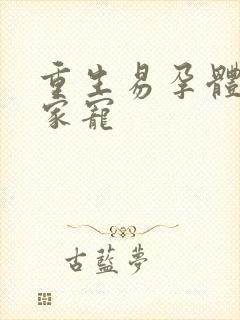 重生易孕體
家寵
古藍夢